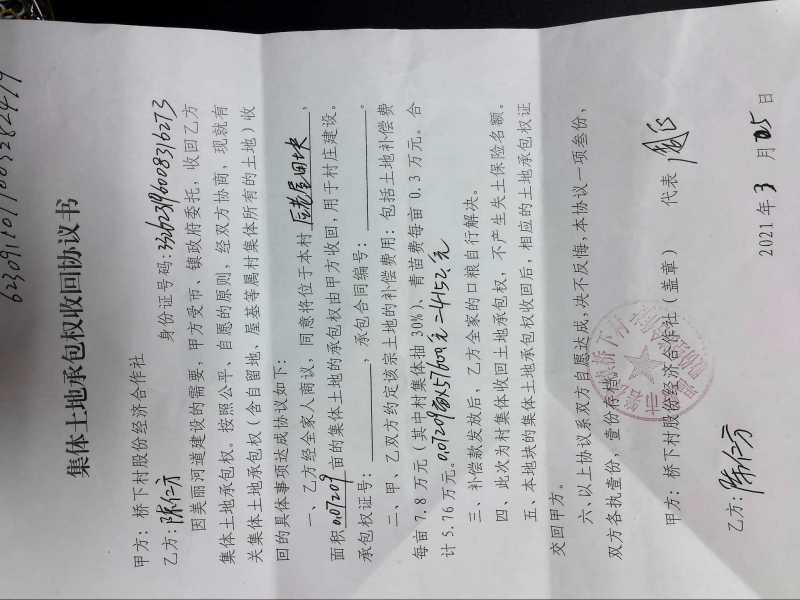 集体土地承包权收回协议书
甲方：桥下村股份经济合作社
乙方：陈仁方 身份证号码：
因美丽河道建设的需要，甲方受市、镇政府委托，收回乙方
集体土地承包权。按照公平、自愿的原则，经双方协商，现就有
关集体土地承包权（含自留地、屋基等属村集体所有的土地）收
回的具体事项达成协议如下：
一、乙方经全家人商议，同意将位于本村 田块，
面积0.07209亩的集体土地的承包权由甲方收回，用于村庄建设。
承包权证号： ，承包合同编号： 。
二、甲、乙双方约定该宗土地的补偿费用：包括土地补偿费
每亩 7.8 万元（其中村集体抽 30%）、青苗费每亩 0.3 万元。合
计 5.76 万元。0.07209亩×57600元=4152元
三、补偿款发放后，乙方全家的口粮自行解决。
四、此次为村集体收回土地承包权，不产生失土保险名额。
五、本地块的集体土地承包权收回后，相应的土地承包权证
交回甲方。
六、以上协议系双方自愿达成，决不反悔，本协议一项叁份，
双方各执壹份，壹份存档。
甲方：桥下村股份经济合作社（盖章） 代表
乙方：陈仁方
2021 年 3 月 25 日